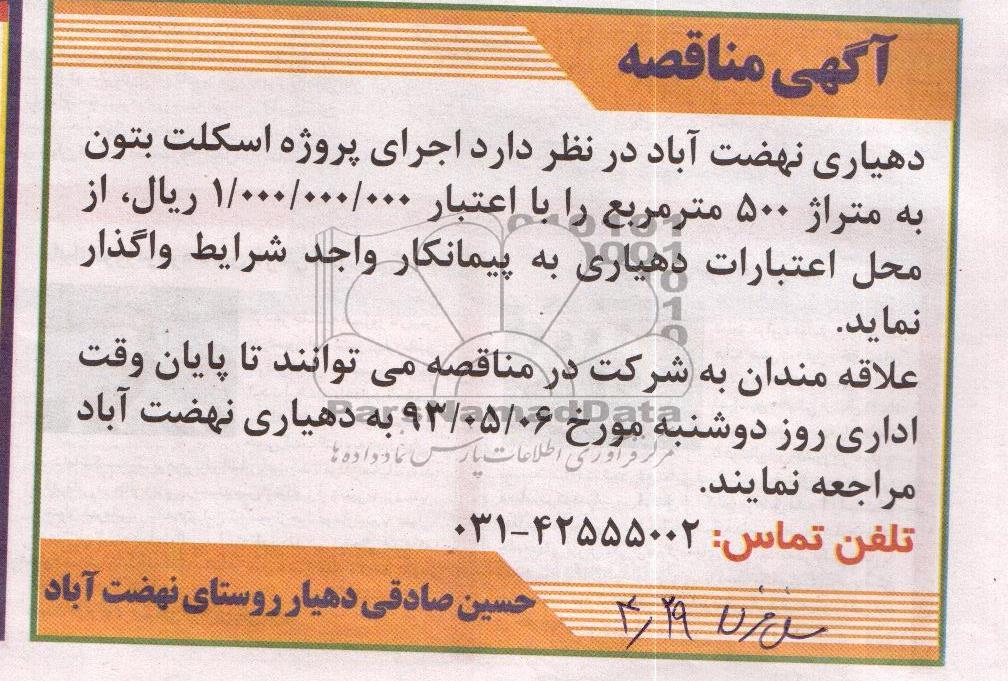 آگهی مناقصه
دهیاری نهضت آباد در نظر دارد اجرای پروژه اسکلت بتون
به متراژ ۵۰۰ مترمربع را با اعتبار ۱/۰۰۰/۰۰۰/۰۰۰ ریال، از
محل اعتبارات دهیاری به پیمانکار واجد شرایط واگذار
نماید.
علاقه مندان به شرکت در مناقصه می توانند تا پایان وقت
اداری روز دوشنبه مورخ ۹۳/۰۵/۰۶ به دهیاری نهضت آباد
مراجعه نمایند.
تلفن تماس: ۴۲۵۵۵۰۰۲-۰۳۱
حسین صادقی دهیار روستای نهضت آباد
ParsNamadData
مرکز فرآوری اطلاعات پارس نماد داده ها
۴/۲۹